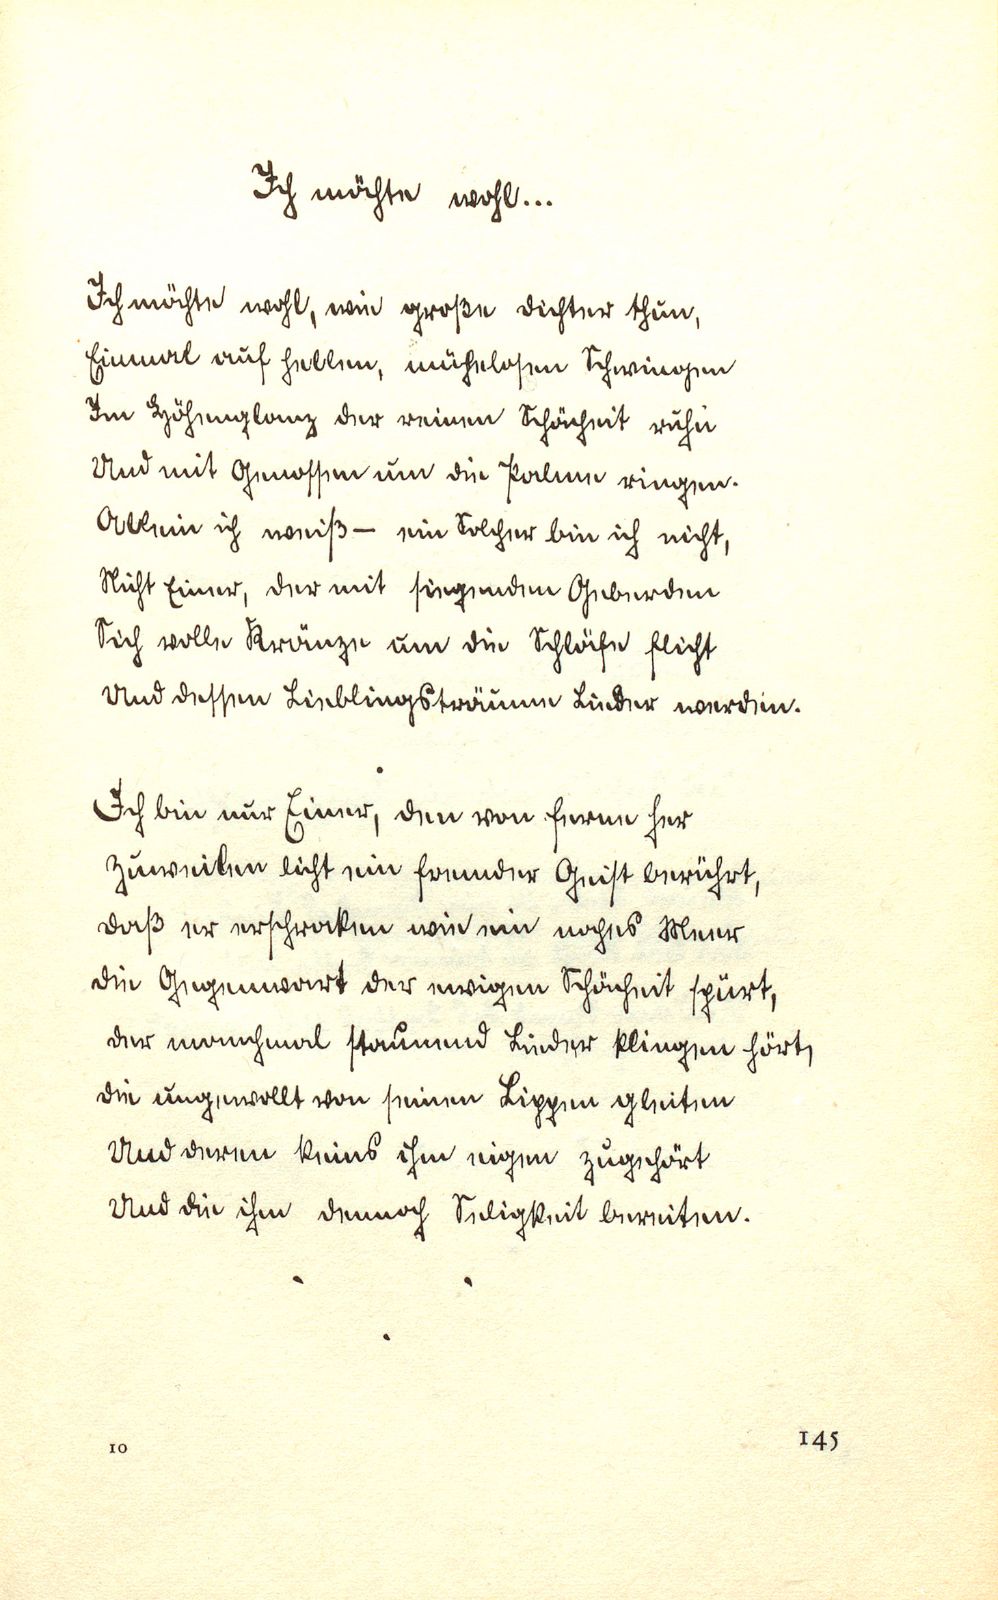 Ich möchte wohl...
Ich möchte wohl, wie große Dichter thun,
Einmal auf hellen, mühelosen Schwingen
Im Höhenglanz der reinen Schönheit ruhn
Und mit Genossen um die Palme ringen.
Allein ich weiß – ein Solcher bin ich nicht,
Nicht Einer, der mit siegenden Geberden
Sich volle Kränze um die Schläfe flicht
Und dessen Lieblingsträume Lieder werden.
Ich bin nur Einer, den von ferne her
Zuweilen licht ein fremder Geist berührt,
Daß er erschrocken wie ein nahes Meer
Die Gegenwart der ewigen Schönheit spürt,
Der manchmal staunend Lieder klingen hört,
Die ungewollt von seinen Lippen gleiten
Und deren keins ihm eigen zugehört
Und die ihm dennoch Seligkeit bereiten.
10
145